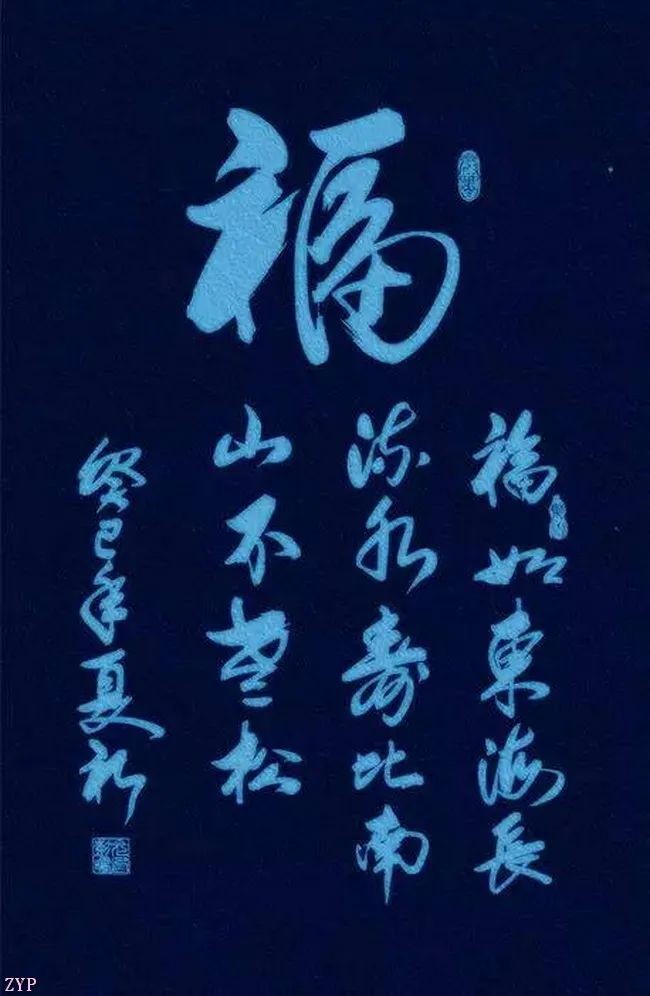 福
福如東海長
流水寿比南
山不老松
癸巳年夏
ZYP